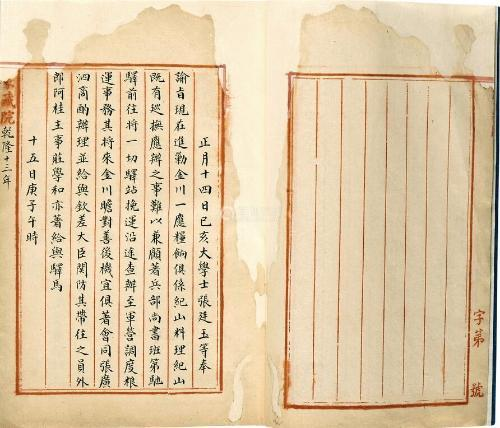 正月十四日己亥大學士張廷玉等奉
諭旨現在進勦金川一應糧餉俱係紀山料理紀山
既有巡撫應辦之事難以兼顧著兵部尚書班第馳
驛前往將一切驛站挽運沿途查辦至軍營調度糧
運事務其將來金川瞻對善後機宜俱著會同張廣
泗商酌辦理並給與欽差大臣關防其帶往之員外
郎阿桂主事莊學和亦著給與驛馬
十五日庚子午時
藏院乾隆十三年
字第 號